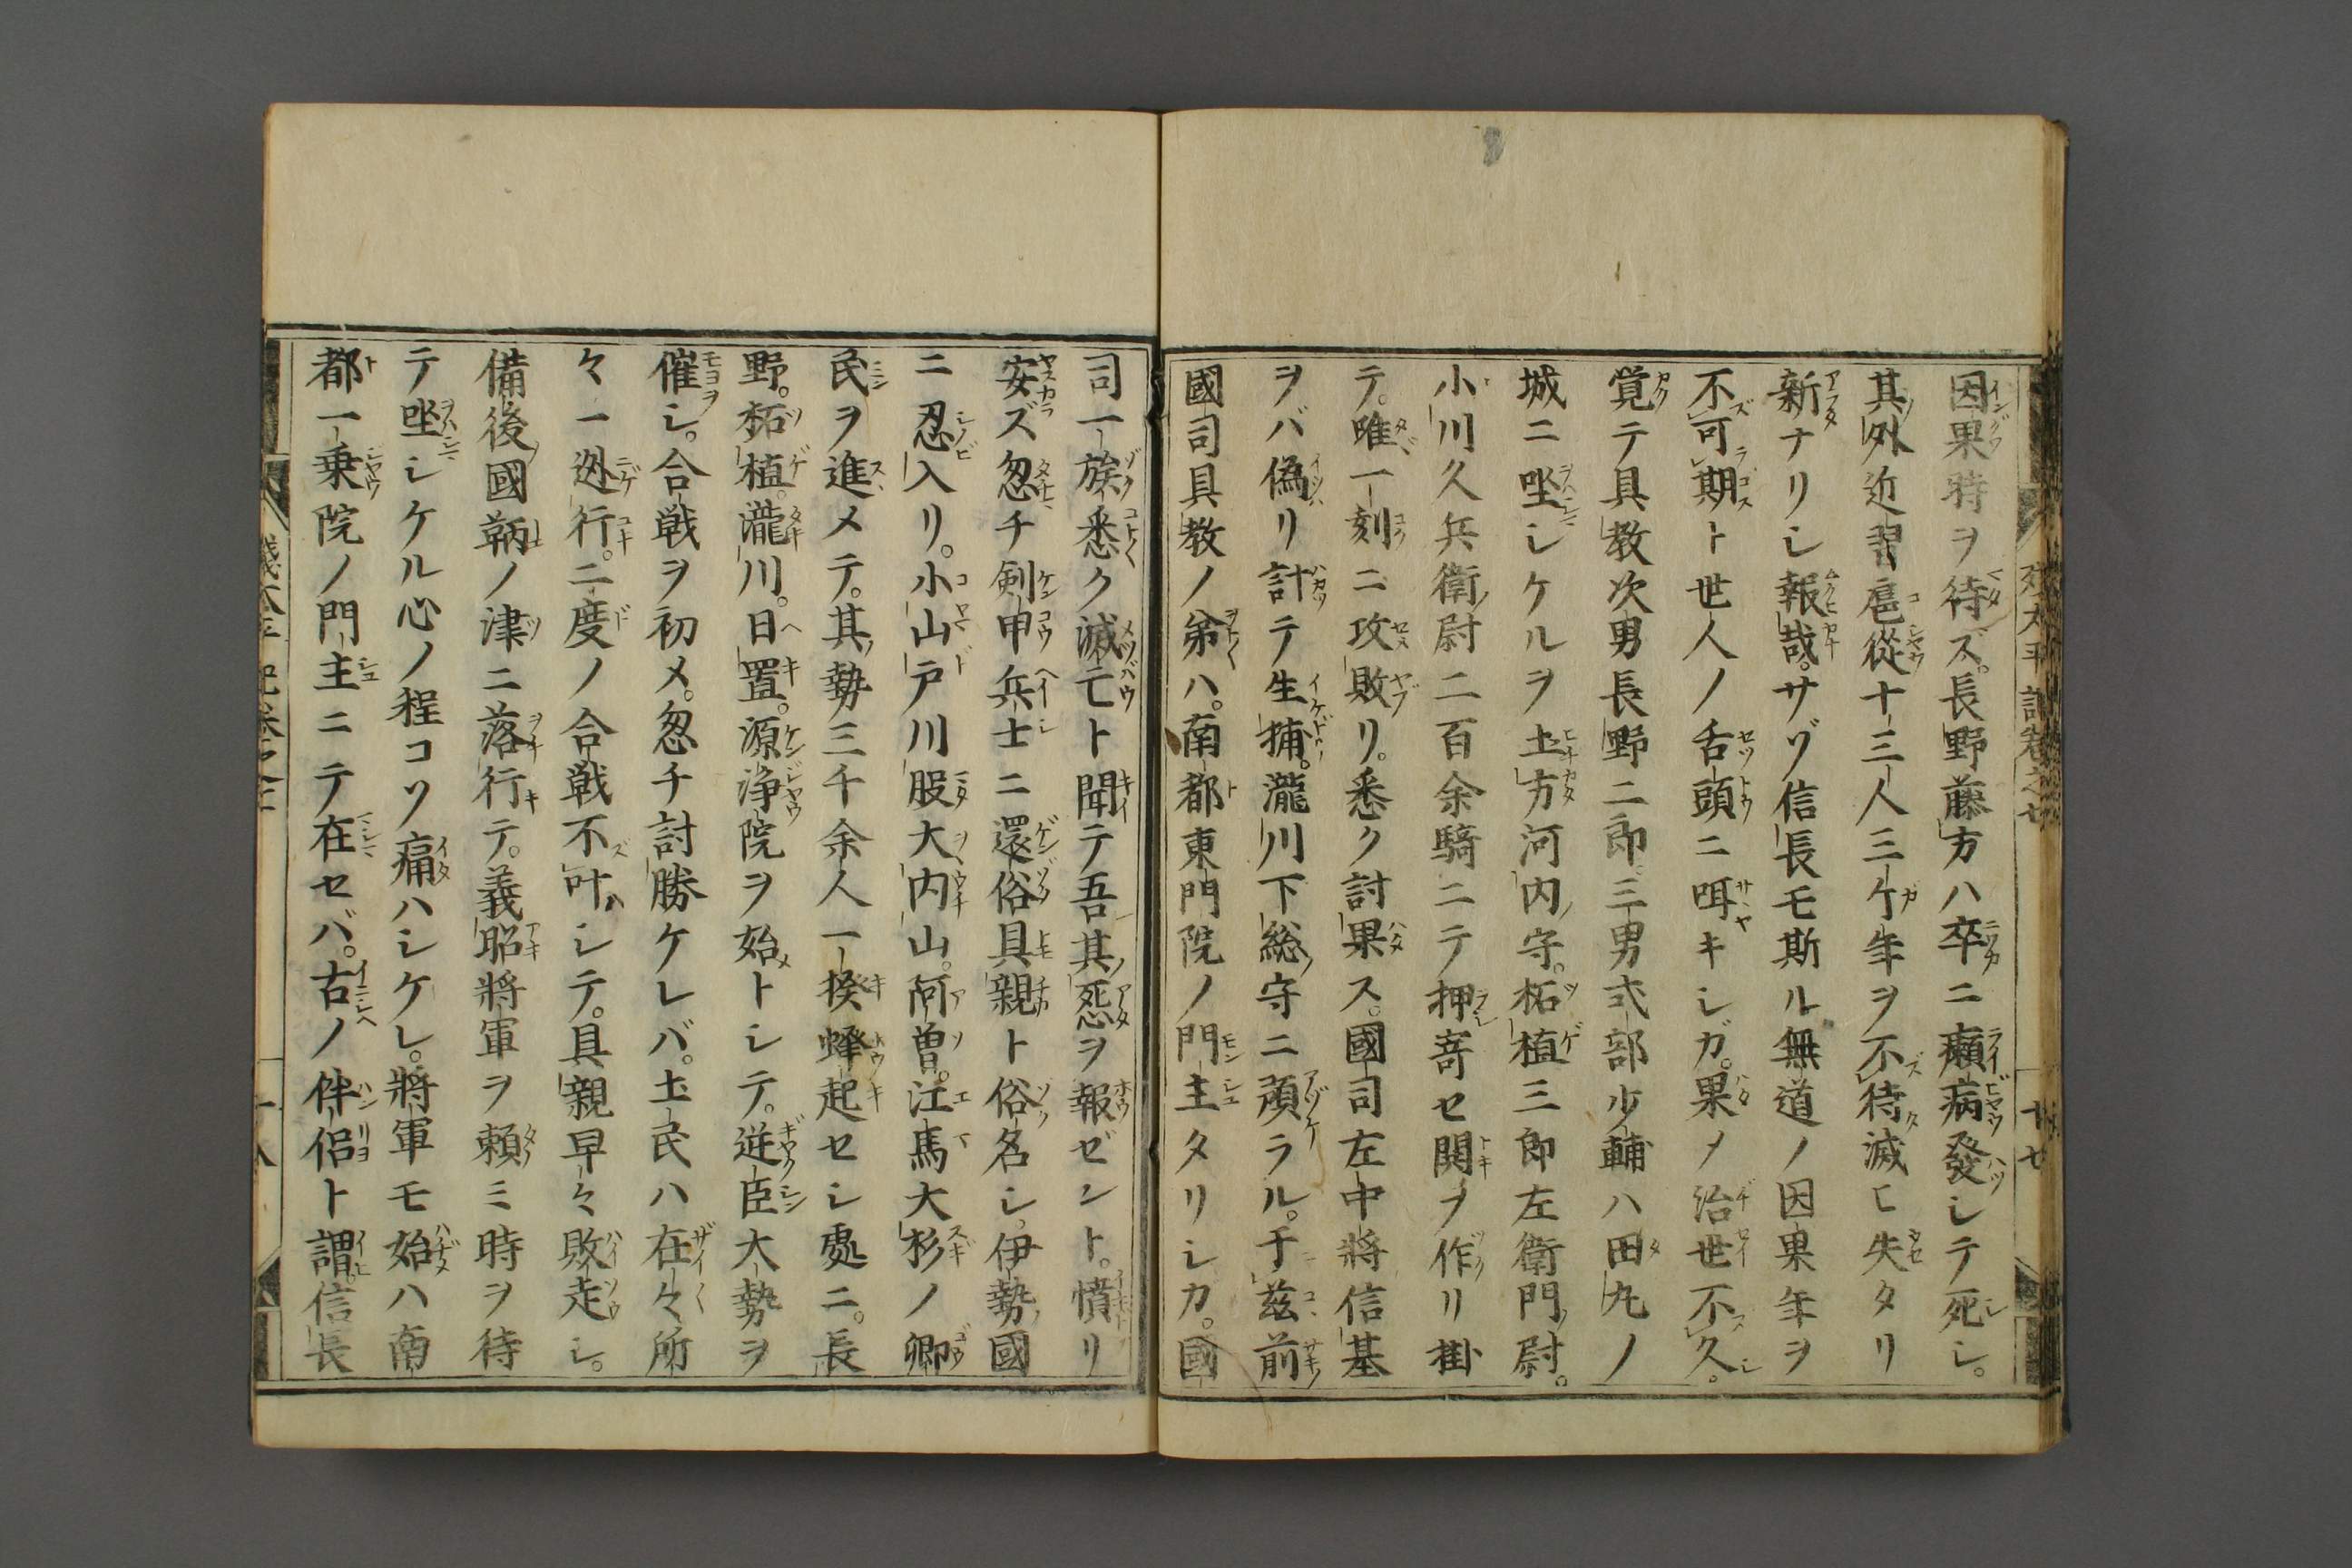 因果時ヲ待ズ。長野藤方ハ卒ニ癩病發シテ死シ。
其外近習扈從十三人三ケ年ヲ不待滅亡失タリ
新ナリシ報哉。サゾ信長モ斯ル無道ノ因果年ヲ
不可期ト世人ノ舌頭ニ咡キシガ。果メ治世不久。
覚テ具教次男長野二郎三男式部少輔ハ田丸ノ
城ニ坐シケルヲ土方河内守。柘植三郎左衛門尉。
小川久兵衛尉二百余騎ニテ押寄セ閧ヲ作リ掛
テ。唯一刻ニ攻敗リ。悉ク討果ス。國司左中將信基
ヲバ偽リ計テ生捕。瀧川下総守ニ預ラル。于茲前
國司具教ノ弟ハ。南都東門院ノ門主タリシカ。國
司一族悉ク滅亡ト聞テ吾其怨ヲ報ゼント。憤リ
安ズ忽チ剣甲兵士ニ還俗具親ト俗名シ。伊勢國
ニ忍入リ。小山戸川股大内山。阿曽。江馬大杉ノ郷
民ヲ進メテ。其勢三千余人一揆蜂起セシ處ニ。長
野。柘植。瀧川。日置。源浄院ヲ始トシテ。逆臣大勢ヲ
催シ。合戦ヲ初メ。忽チ討勝ケレバ。土民ハ在々所
々一迯行。二度ノ合戦不叶シテ。具親早々敗走シ。
備後國鞆ノ津ニ落行テ。義昭將軍ヲ頼ミ時ヲ待
テ坐シケル心ノ程コソ痛ハシケレ。將軍モ始ハ南
都一乗院ノ門主ニテ在セバ。古ノ伴侶ト謂。信長